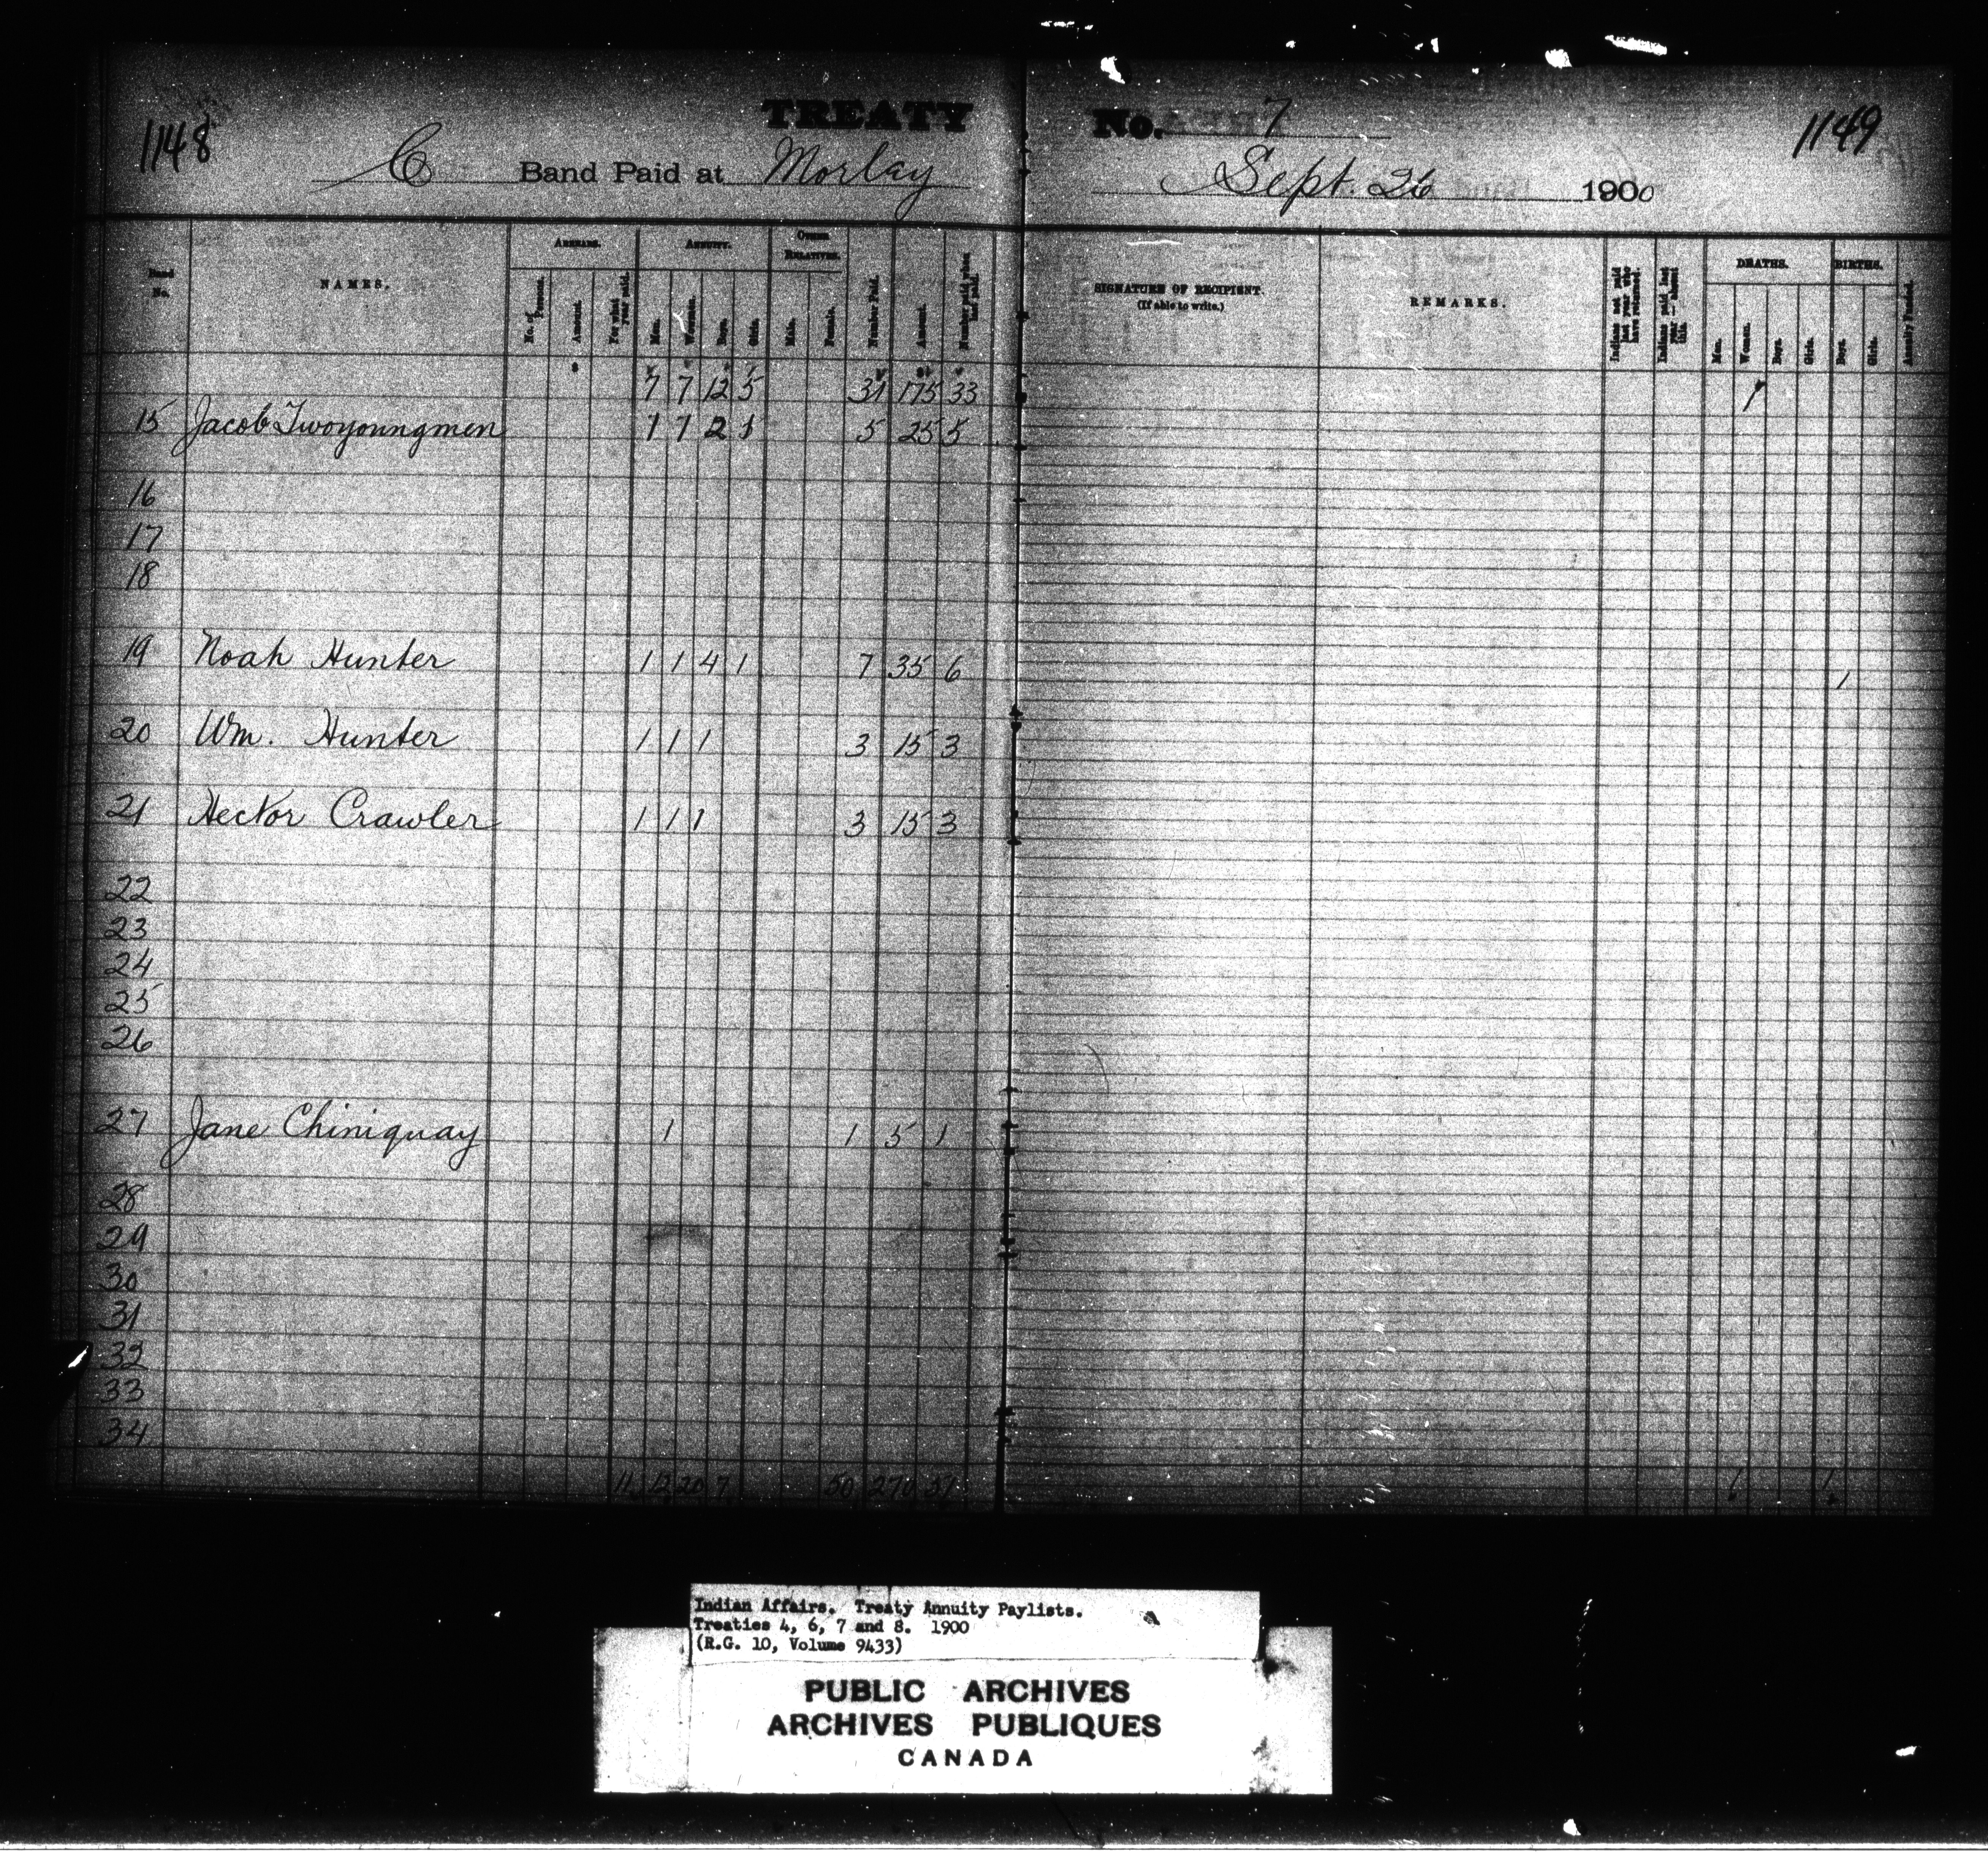 1148
TREATY No. 7
1149
C Band Paid at Morlay Sept. 26 1900
Band No.
NAMES.
ARREARS.
No. of Persons.
Amount.
For what year paid.
ANNUITY.
Men.
Women.
Boys.
Girls.
OTHER RELATIVES.
Male.
Female.
Number Paid.
Amount.
Number paid when last paid.
SIGNATURE OF RECIPIENT.
(If able to write.)
REMARKS.
Indians not paid last year who have returned.
Indians paid last year — absent this.
DEATHS.
Men.
Women.
Boys.
Girls.
BIRTHS.
Boys.
Girls.
Annuity Funded.
7 7 12 5 31 175 33 1
15 Jacob Twoyoungmen 1 1 2 1 5 25 5
16
17
18
19 Noah Hunter 1 1 4 1 7 35 6 1
20 Wm. Hunter 1 1 1 3 15 3
21 Hector Crawler 1 1 1 3 15 3
22
23
24
25
26
27 Jane Chiniquay 1 1 5 1
28
29
30
31
32
33
34
11 12 20 7 50 270 51 1 1
Indian Affairs. Treaty Annuity Paylists.
Treaties 4, 6, 7 and 8. 1900
(R.G. 10, Volume 9433)
PUBLIC ARCHIVES
ARCHIVES PUBLIQUES
CANADA